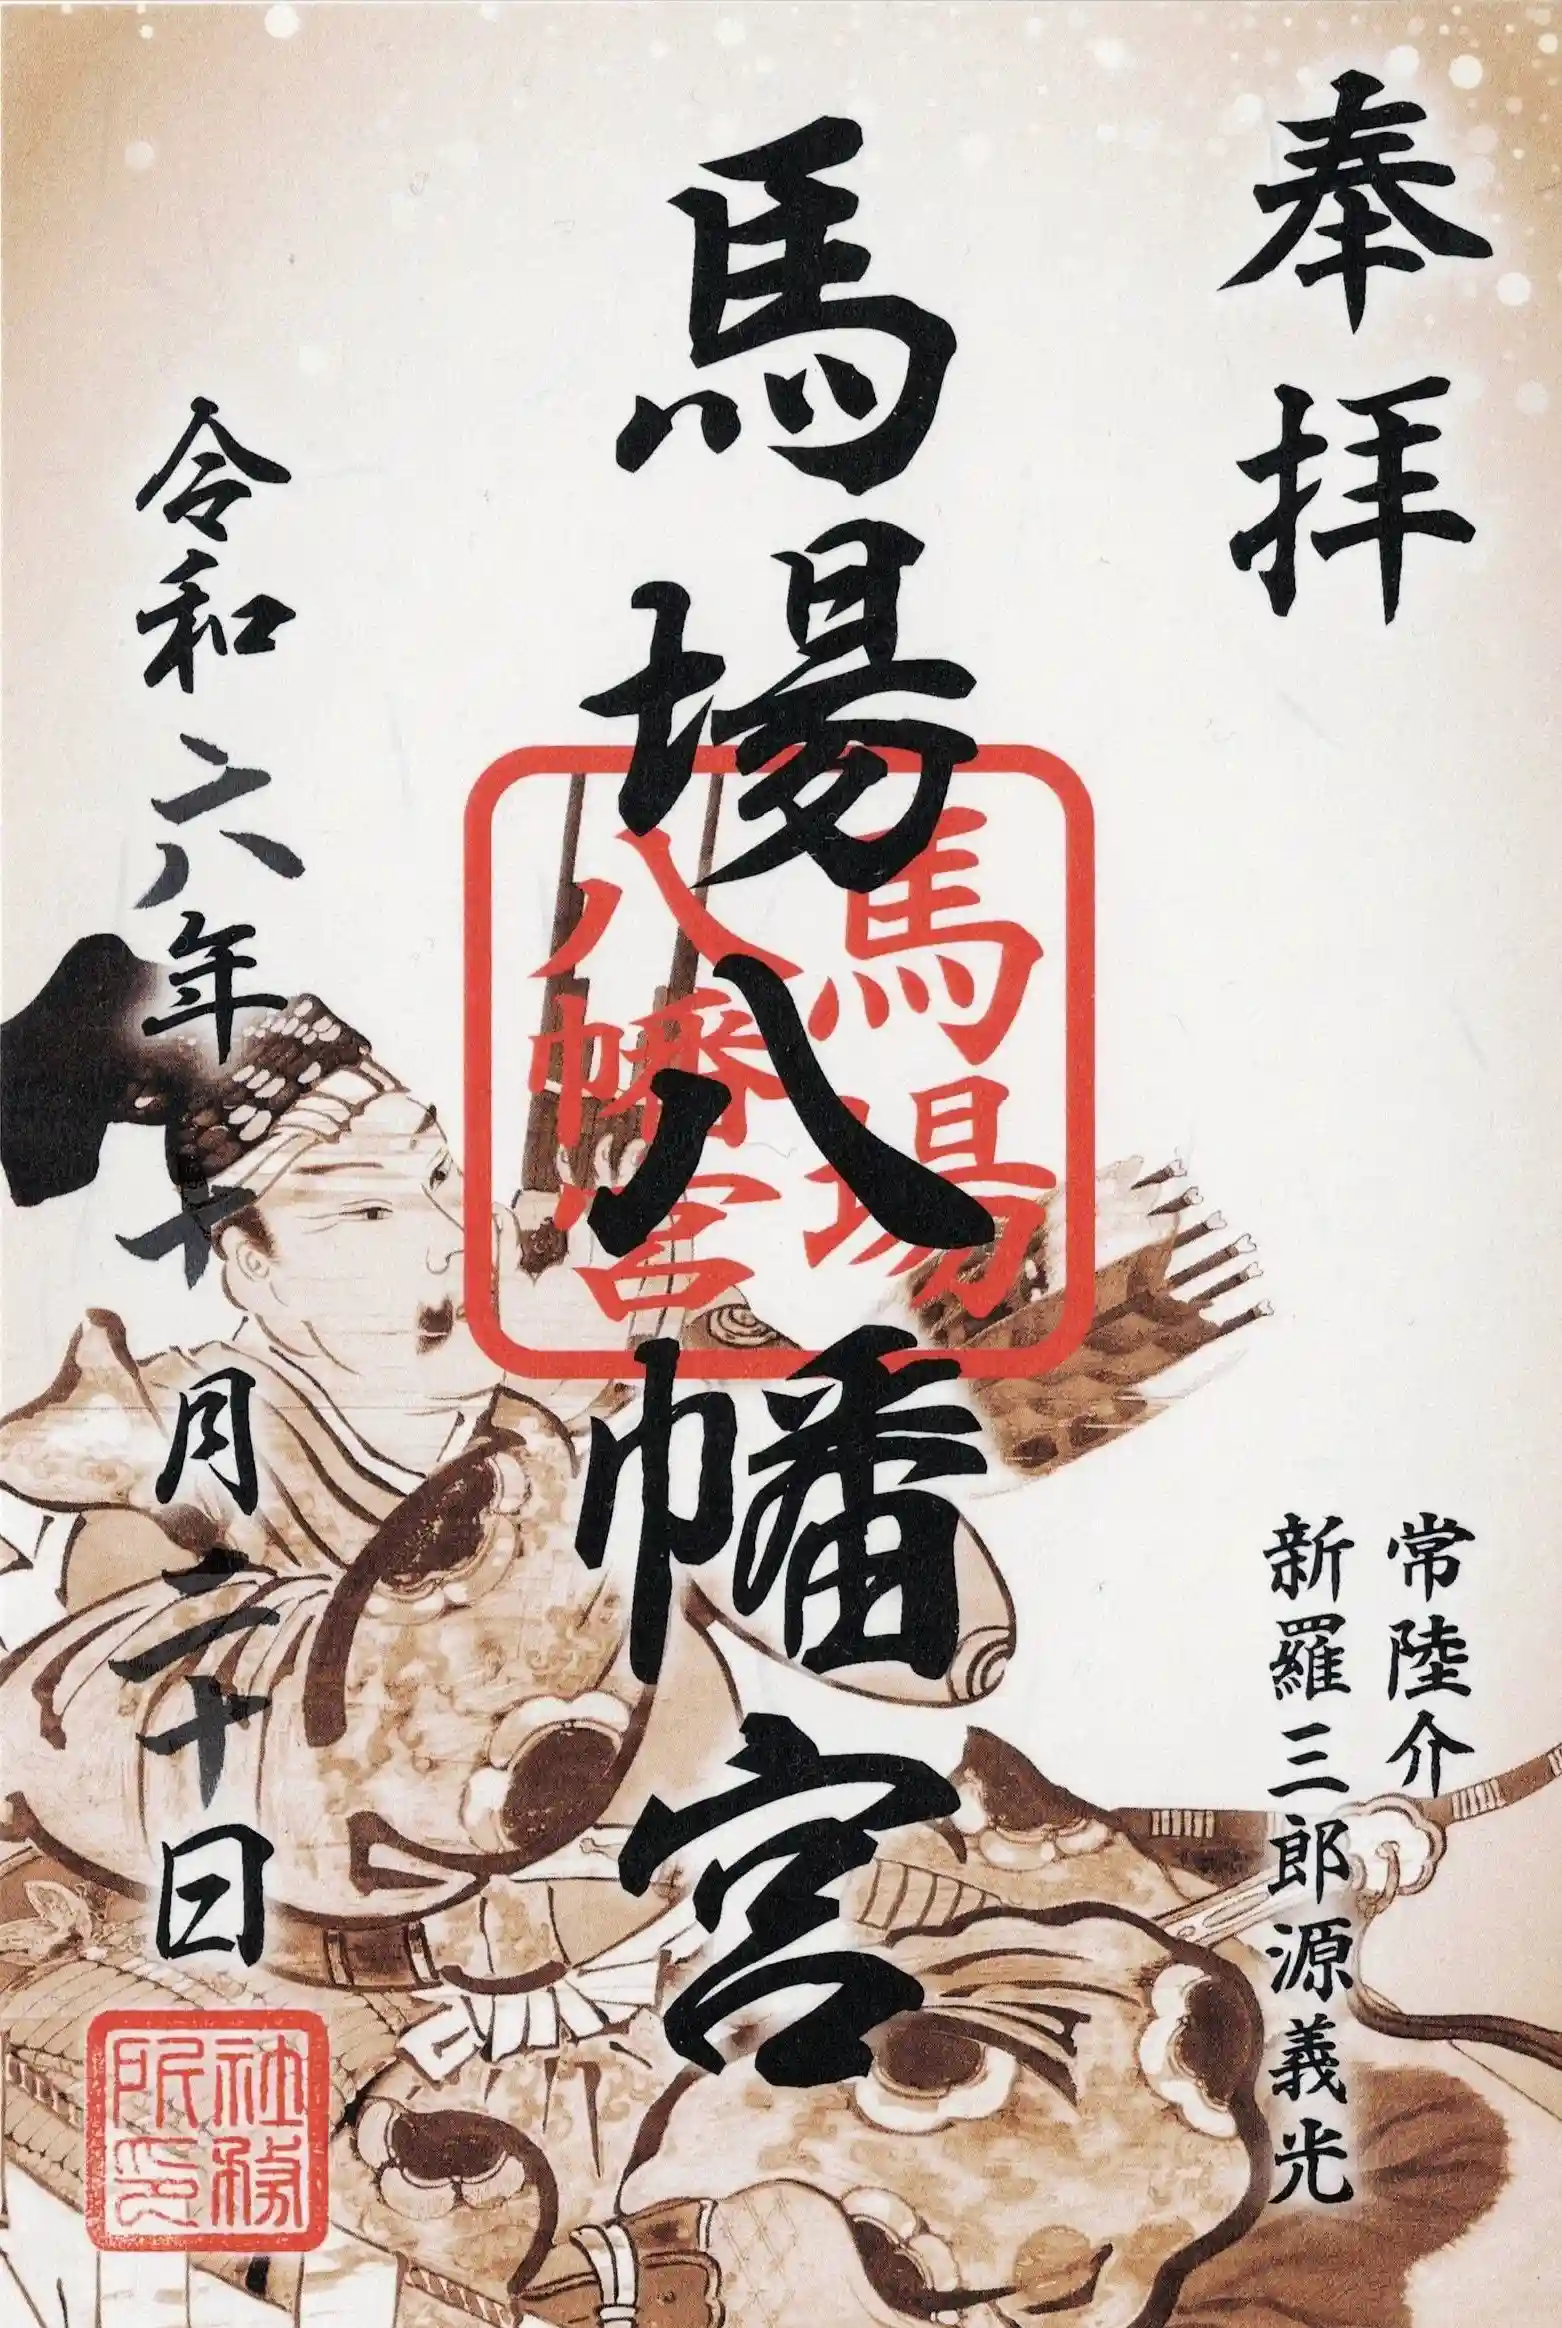 奉拝
常陸介
新羅三郎源義光
馬場八幡宮
馬場
八幡宮
令和六年十月二十日
社務
所印